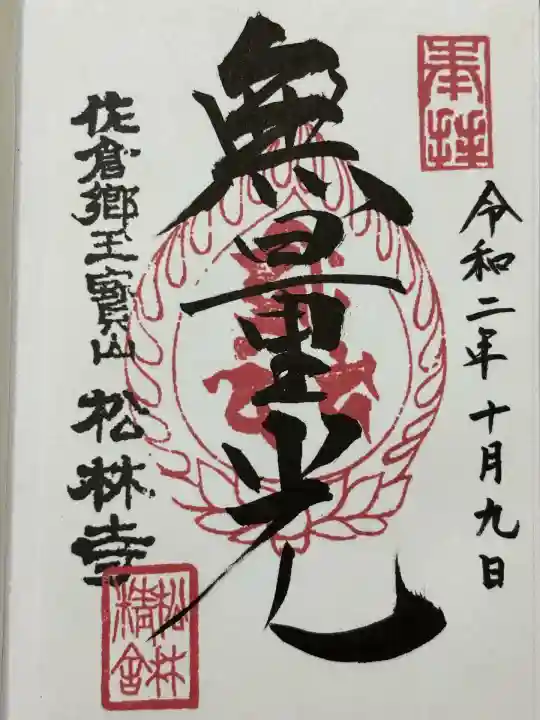 奉拝
令和二年十月九日
無量光
佐倉郷玉寳山 松林寺
松林
精舎